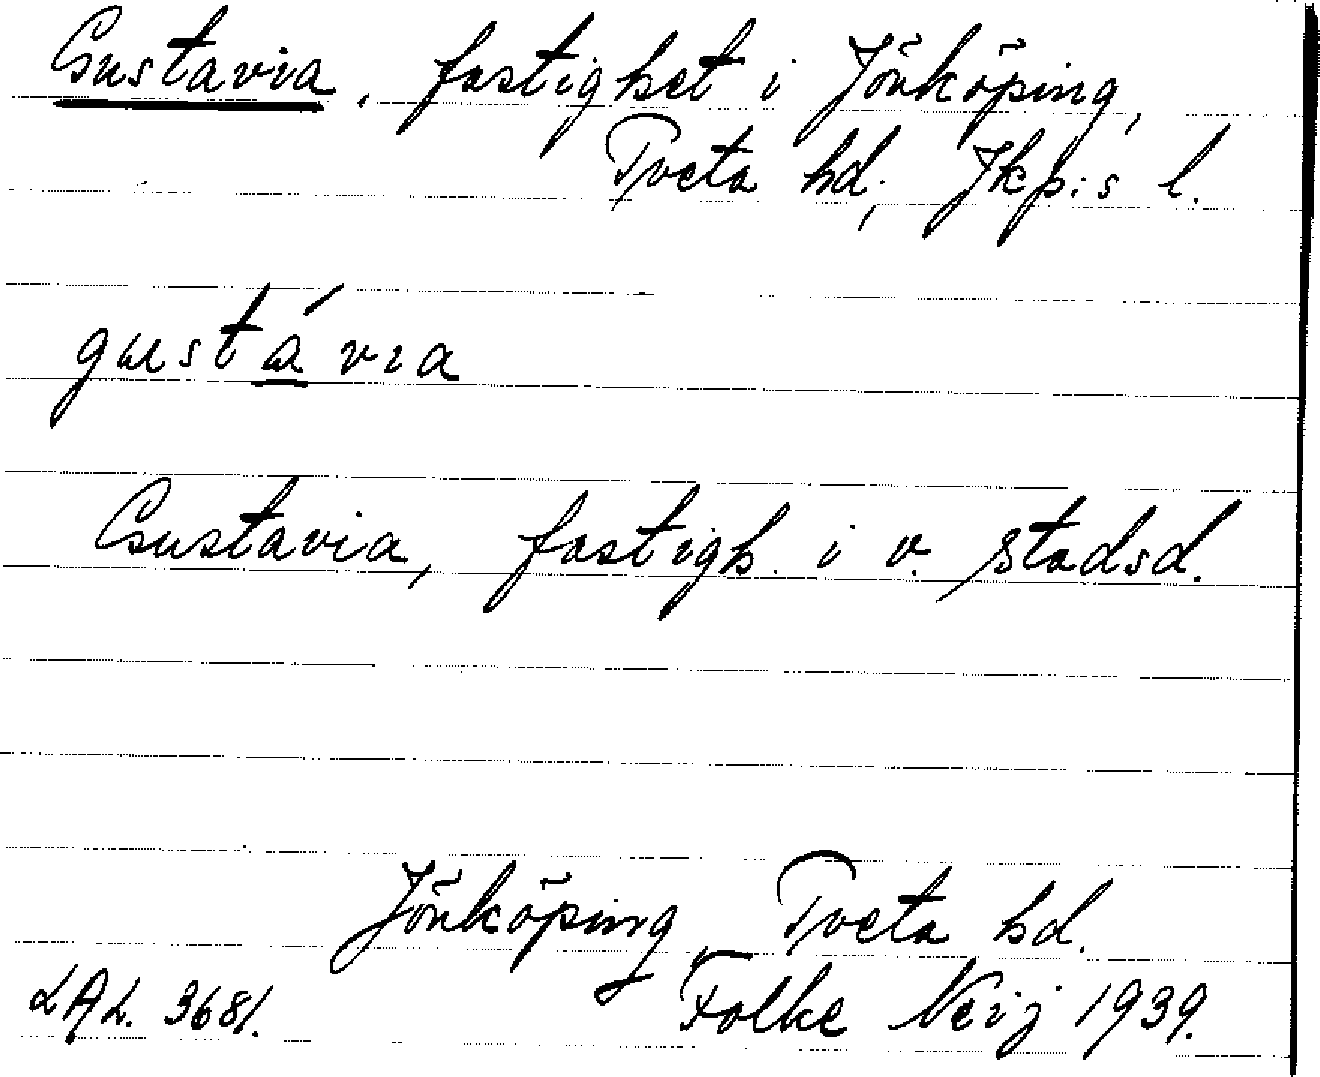 Gustavia, fastighet i Jönköping,
Tveta hd, Jkp:s l.
gustávia
Gustavia, fastigh. i v. stadsd.
Jönköping, Tveta hd.
LAL. 3681. Folke Neij 1939.